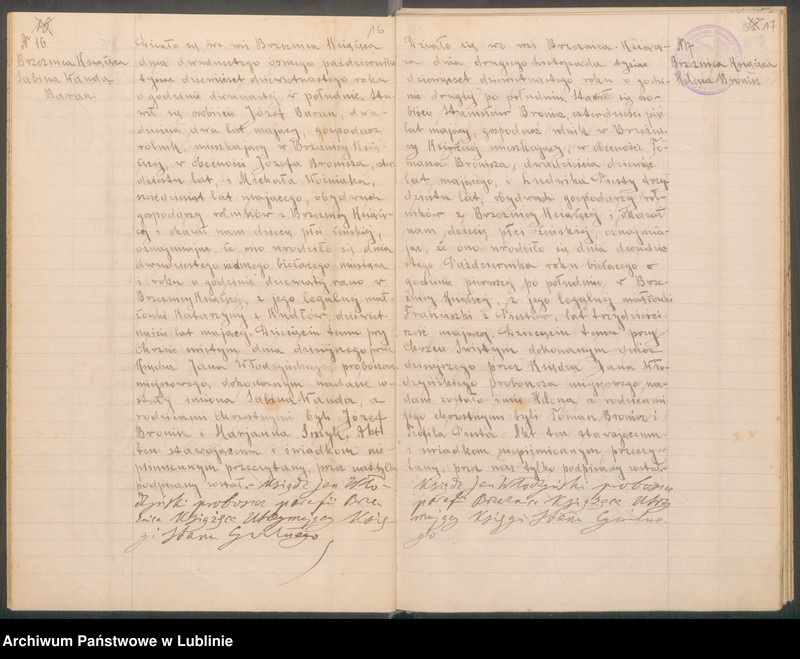 16
№ 16
Brzeźnica Książęca
Sabina Wanda
Baran
Działo się we wsi Brzeźnica Książęca
dnia dwudziestego ósmego października
tysiąc dziewięćset dziewiętnastego roku
o godzinie dwunastej w południe. Sta-
wił się osobiście Józef Baran, dwa-
dzieścia dwa lat mający, gospodarz
rolnik, mieszkający w Brzeźnicy Ksią-
żęcej, w obecności Józefa Bronisza,
lat, i Michała Woźniaka,
lat mającego, obydwóch
gospodarzy rolników z Brzeźnicy Książę-
cej i okazał nam dziecię płci żeńskiej,
oznajmując, że ono urodziło się dnia
dwudziestego bieżącego miesiąca
i roku o godzinie dziewiątej rano w
Brzeźnicy Książęcej, z jego legalnej mał-
żonki Katarzyny z dziewięt-
naście lat mającej. Dziecięciu temu przy
Chrzcie świętym dnia dzisiejszego przez
Księdza Jana Włodzyńskiego, proboszcza
miejscowego, dokonanym nadane zo-
stały imiona Sabina Wanda, a
rodzicami chrzestnymi byli Józef
Bronisz i Marjanna Smyk. Akt
ten stawającemu i świadkom nie-
piśmiennym przeczytany, przez nas tylko
podpisany został. Ksiądz Jan Wło-
dzyński proboszcz parafii Brze-
źnica Książęca Utrzymujący Księ-
gi Stanu Cywilnego
17
№ 17
Brzeźnica Książęca
Helena Bronisz
Działo się we wsi Brzeźnica Książę-
ca dnia drugiego listopada tysiąc
dziewięćset dziewiętnastego roku o godzi-
nie drugiej po południu. Stawił się oso-
biście Stanisław Bronisz, czterdzieści pięć
lat mający, gospodarz rolnik w Brzeźni-
cy Książęcej mieszkający, w obecności To-
masza Bronisza, dwadzieścia dziewięć
lat mającego, i Ludwika Piesty trzy-
dzieści lat, obydwóch gospodarzy rol-
ników z Brzeźnicy Książęcej i okazał
nam dziecię płci żeńskiej, oznajmia-
jąc, że ono urodziło się dnia
Października roku bieżącego o
godzinie pierwszej po południu w Brze-
źnicy Książęcej, z jego legalnej małżonki
Franciszki z Piestów, lat trzydzieści
sześć mającej. Dziecięciu temu przy
Chrzcie Świętym dokonanym dnia
dzisiejszego przez Księdza Jana Wło-
dzyńskiego Proboszcza miejscowego na-
dane zostało imię Helena a rodzicami
jego chrzestnymi byli Toman Bronisz i
Teofila Piesta. Akt ten stawającemu
i świadkom niepiśmiennym przeczy-
tany, przez nas tylko podpisany został.
Ksiądz Jan Włodzyński proboszcz
parafii Brzeźnica Książęca Utrzy-
mujący Księgi Stanu Cywilne-
go
Archiwum Państwowe w Lublinie